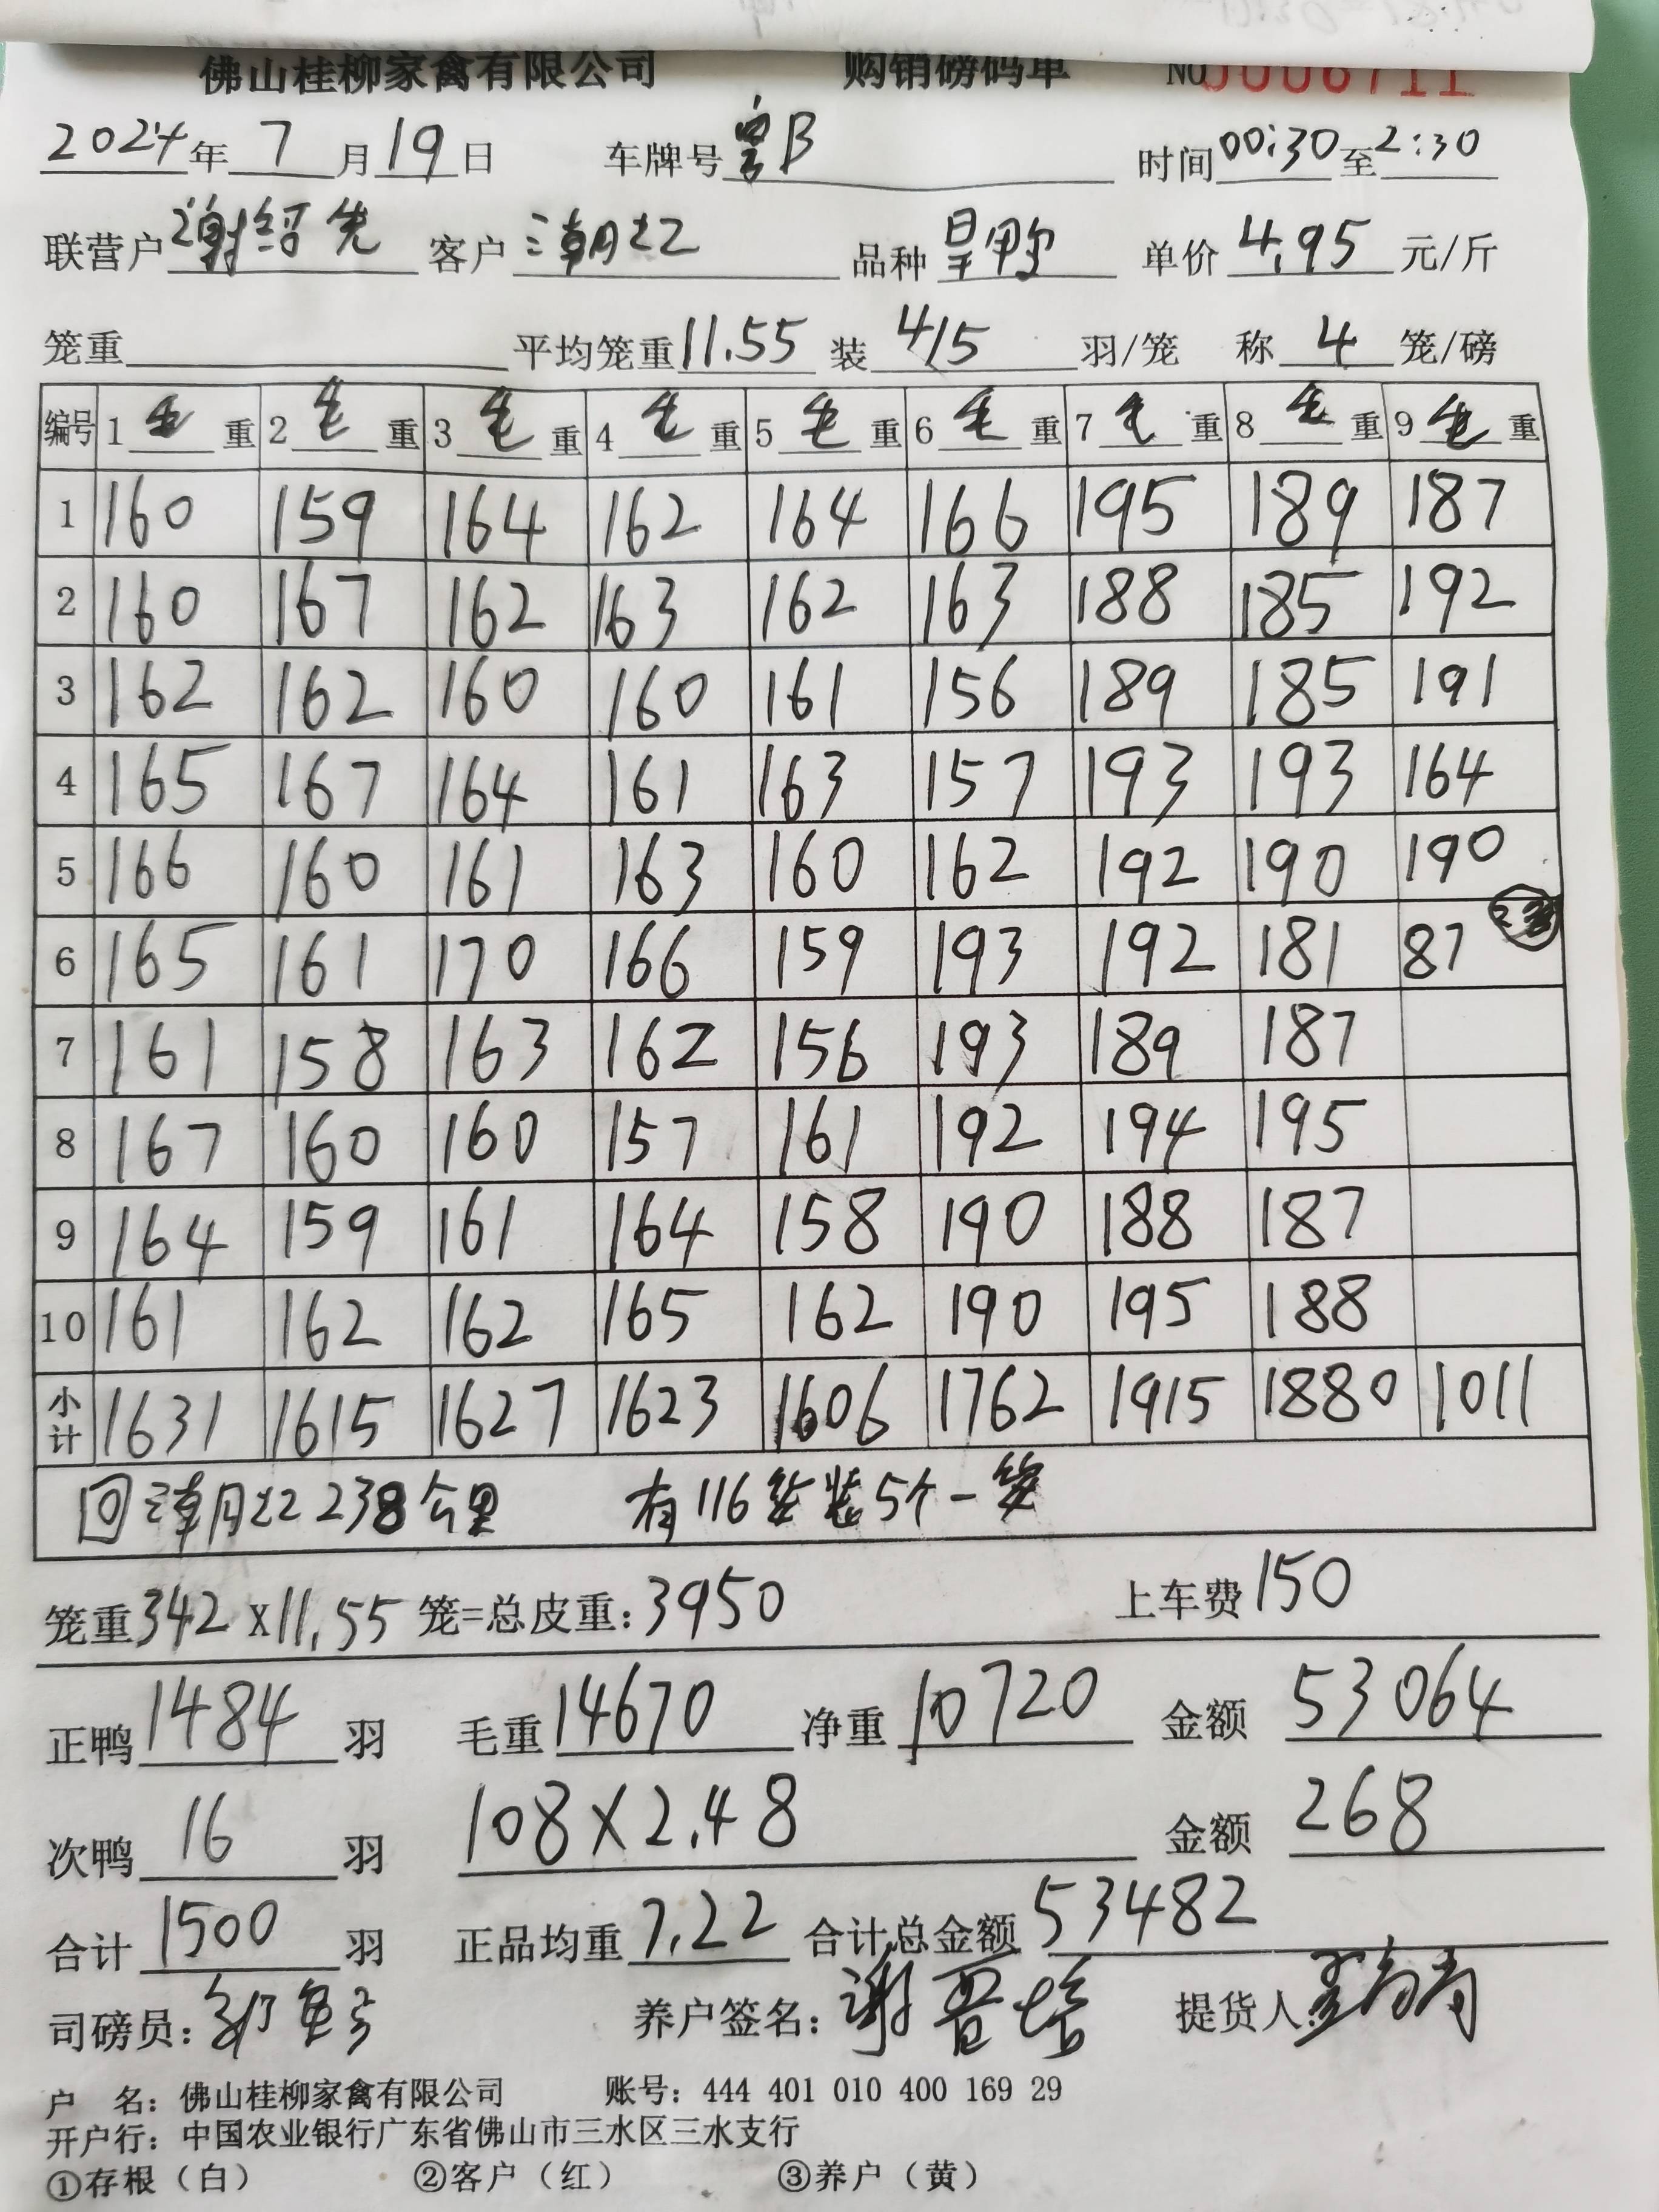 佛山桂柳家禽有限公司 购销磅码单 NO 0006711
2024年 7 月 19 日 车牌号 时间 00:30 至 2:30
联营户 谢绍先 客户 潮江 品种 单价 4.95 元/斤
笼重 平均笼重 11.55 装 4/5 羽/笼 称 4 笼/磅
编号 1 毛 重 2 毛 重 3 毛 重 4 毛 重 5 毛 重 6 毛 重 7 毛 重 8 毛 重 9 毛 重
1 160 159 164 162 164 166 195 189 187
2 160 167 162 163 162 163 188 185 192
3 162 162 160 160 161 156 189 185 191
4 165 167 164 161 163 157 193 193 164
5 166 160 161 163 160 162 192 190 190
6 165 161 170 166 159 193 192 181 87
7 161 158 163 162 156 193 189 187
8 167 160 160 157 161 192 194 195
9 164 159 161 164 158 190 188 187
10 161 162 162 165 162 190 195 188
小计 1631 1615 1627 1623 1606 1762 1915 1880 1011
回潮江238公里 有116笼装5个一笼
笼重 342 X 11.55 笼=总皮重: 3950 上车费 150
正鸭 1484 羽 毛重 14670 净重 10720 金额 53064
次鸭 16 羽 108×2.48 金额 268
合计 1500 羽 正品均重 7.22 合计总金额 53482
司磅员: 养户签名: 谢 提货人:
户 名: 佛山桂柳家禽有限公司 账号: 444 401 010 400 169 29
开户行: 中国农业银行广东省佛山市三水区三水支行
①存根（白） ②客户（红） ③养户（黄）